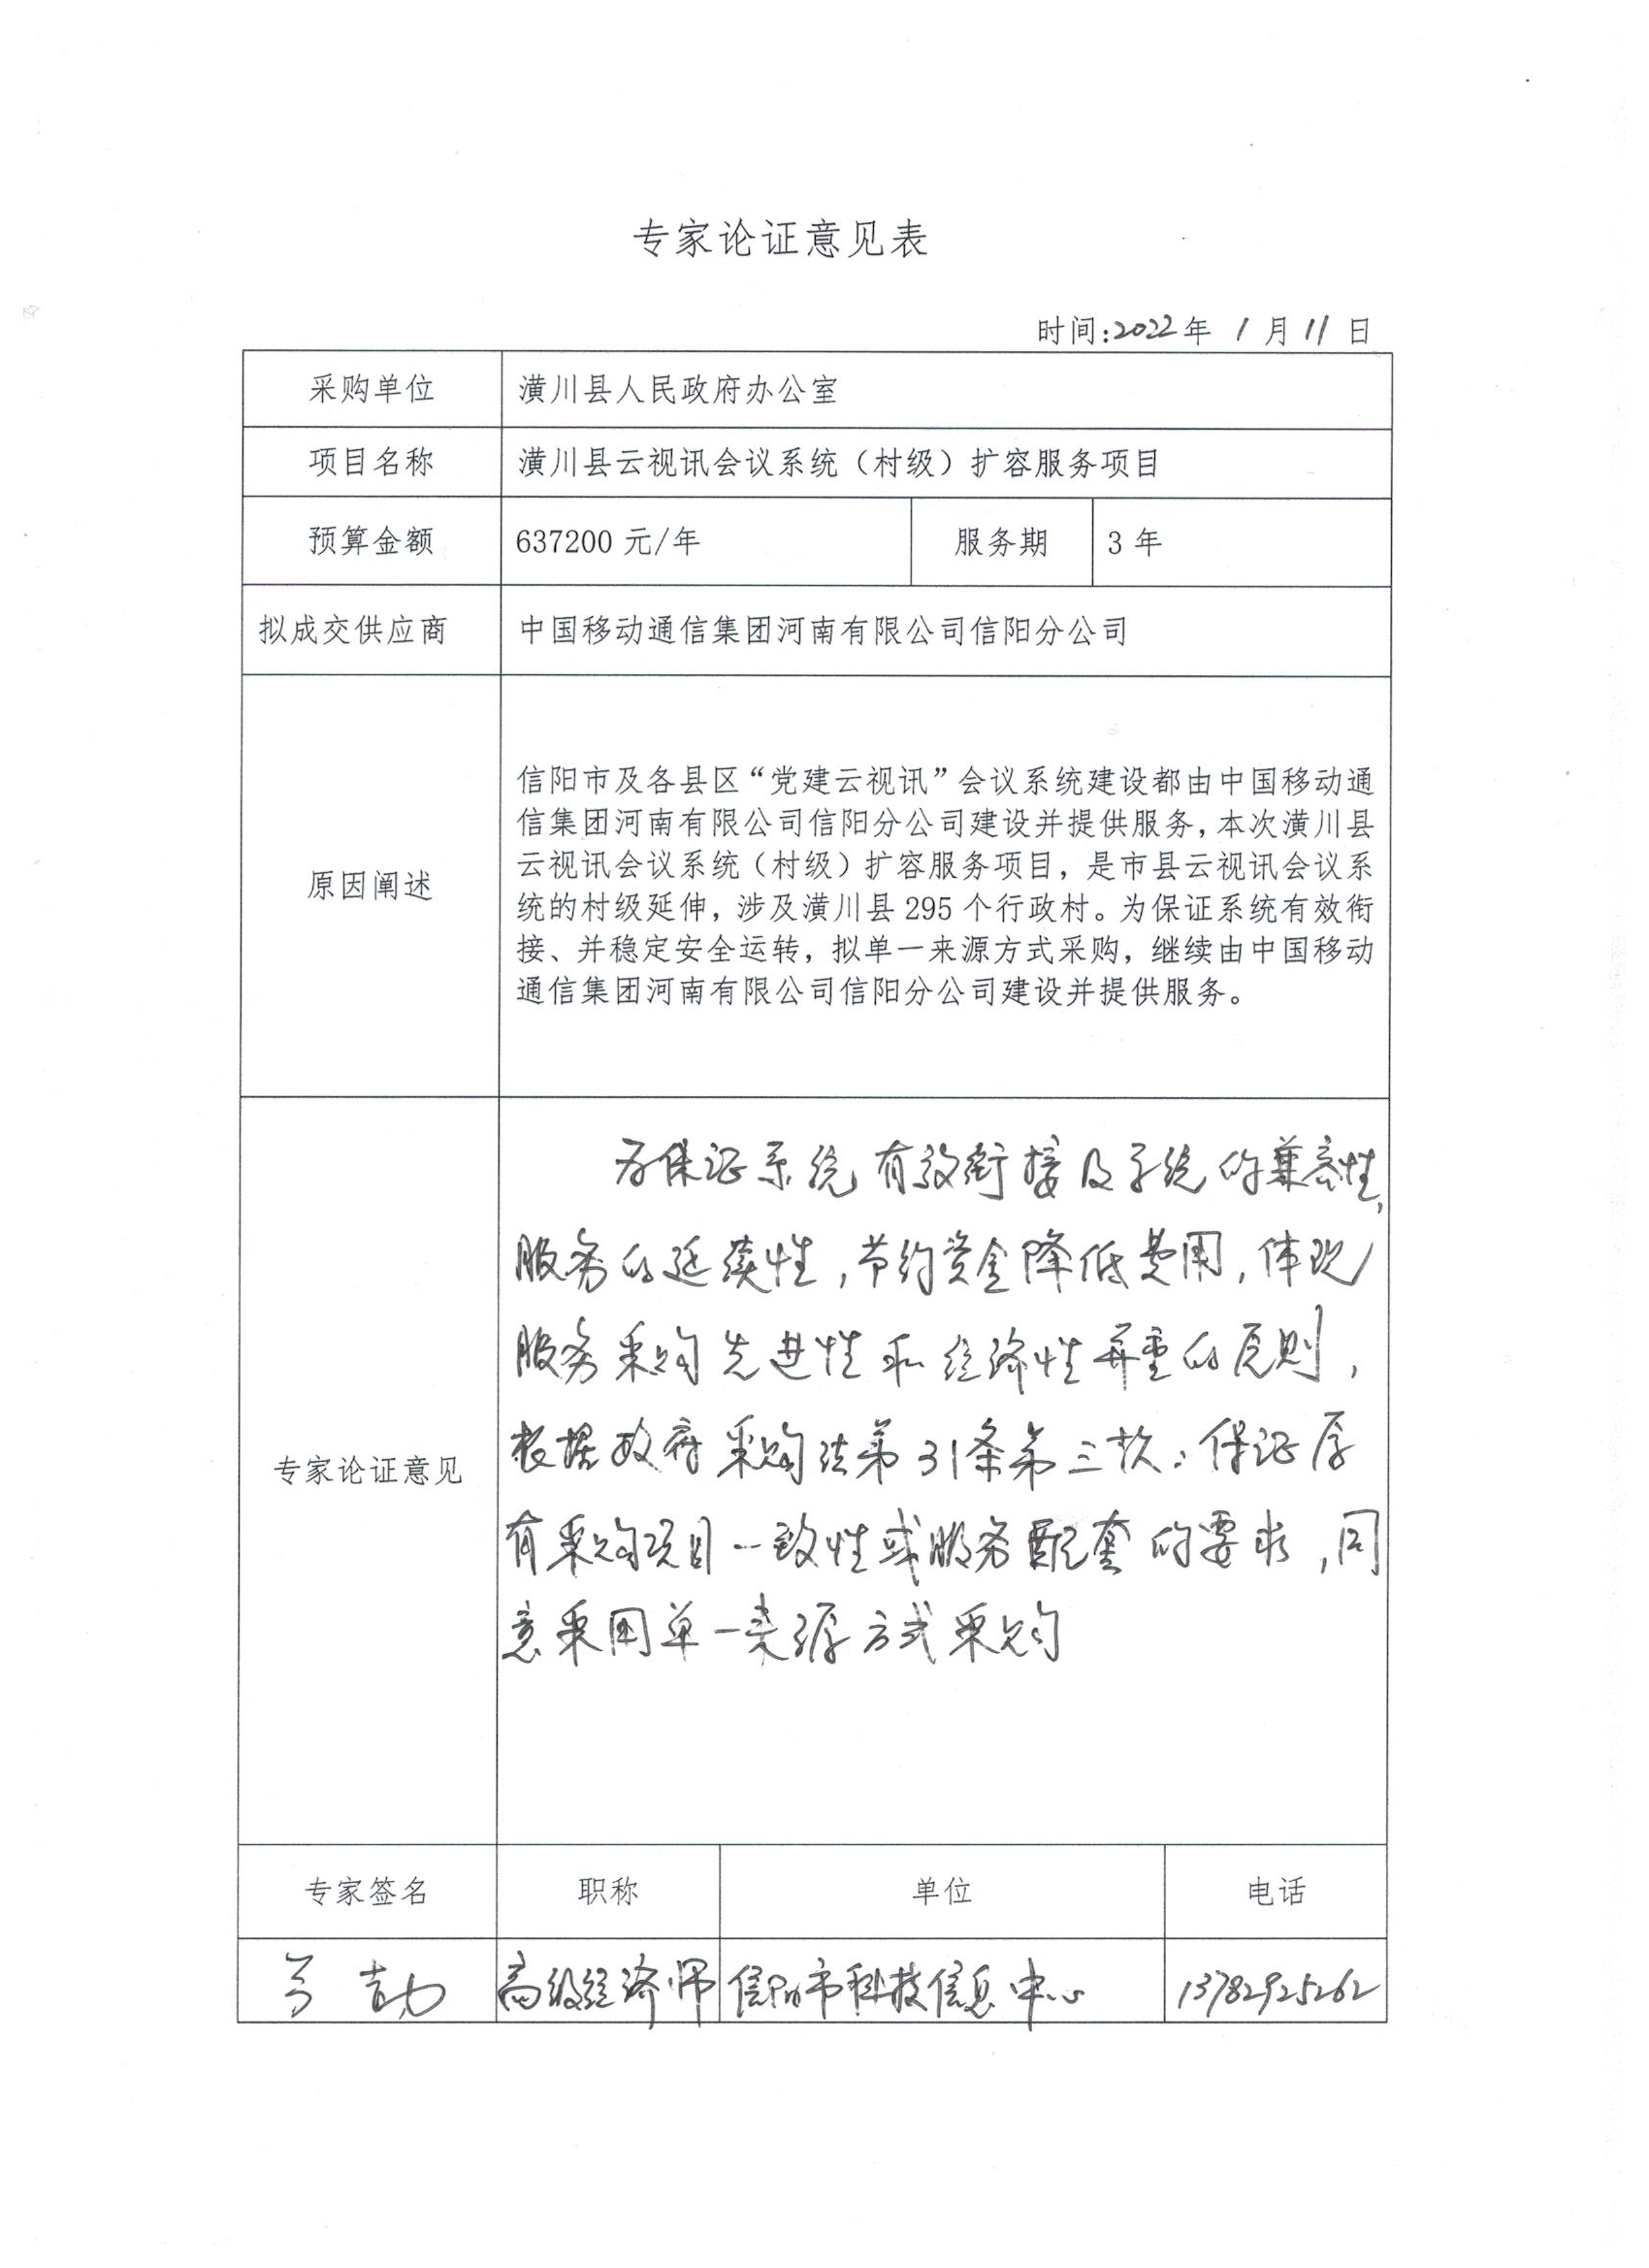 专家论证意见表
时间:2022年 1 月 11 日
采购单位
潢川县人民政府办公室
项目名称
潢川县云视讯会议系统（村级）扩容服务项目
预算金额
637200 元/年
服务期
3 年
拟成交供应商
中国移动通信集团河南有限公司信阳分公司
原因阐述
信阳市及各县区“党建云视讯”会议系统建设都由中国移动通
信集团河南有限公司信阳分公司建设并提供服务，本次潢川县
云视讯会议系统（村级）扩容服务项目，是市县云视讯会议系
统的村级延伸，涉及潢川县 295 个行政村。为保证系统有效衔
接、并稳定安全运转，拟单一来源方式采购，继续由中国移动
通信集团河南有限公司信阳分公司建设并提供服务。
专家论证意见
为保证系统有效衔接及系统的兼容性，
服务的延续性，节约资金降低费用，体现
服务采购先进性和经济性并重的原则，
根据政府采购法第31条第三款：保证原
有采购项目一致性或服务配套的要求，同
意采用单一来源方式采购
专家签名
职称
单位
电话
高级经济师
信阳市科技信息中心
13782925262